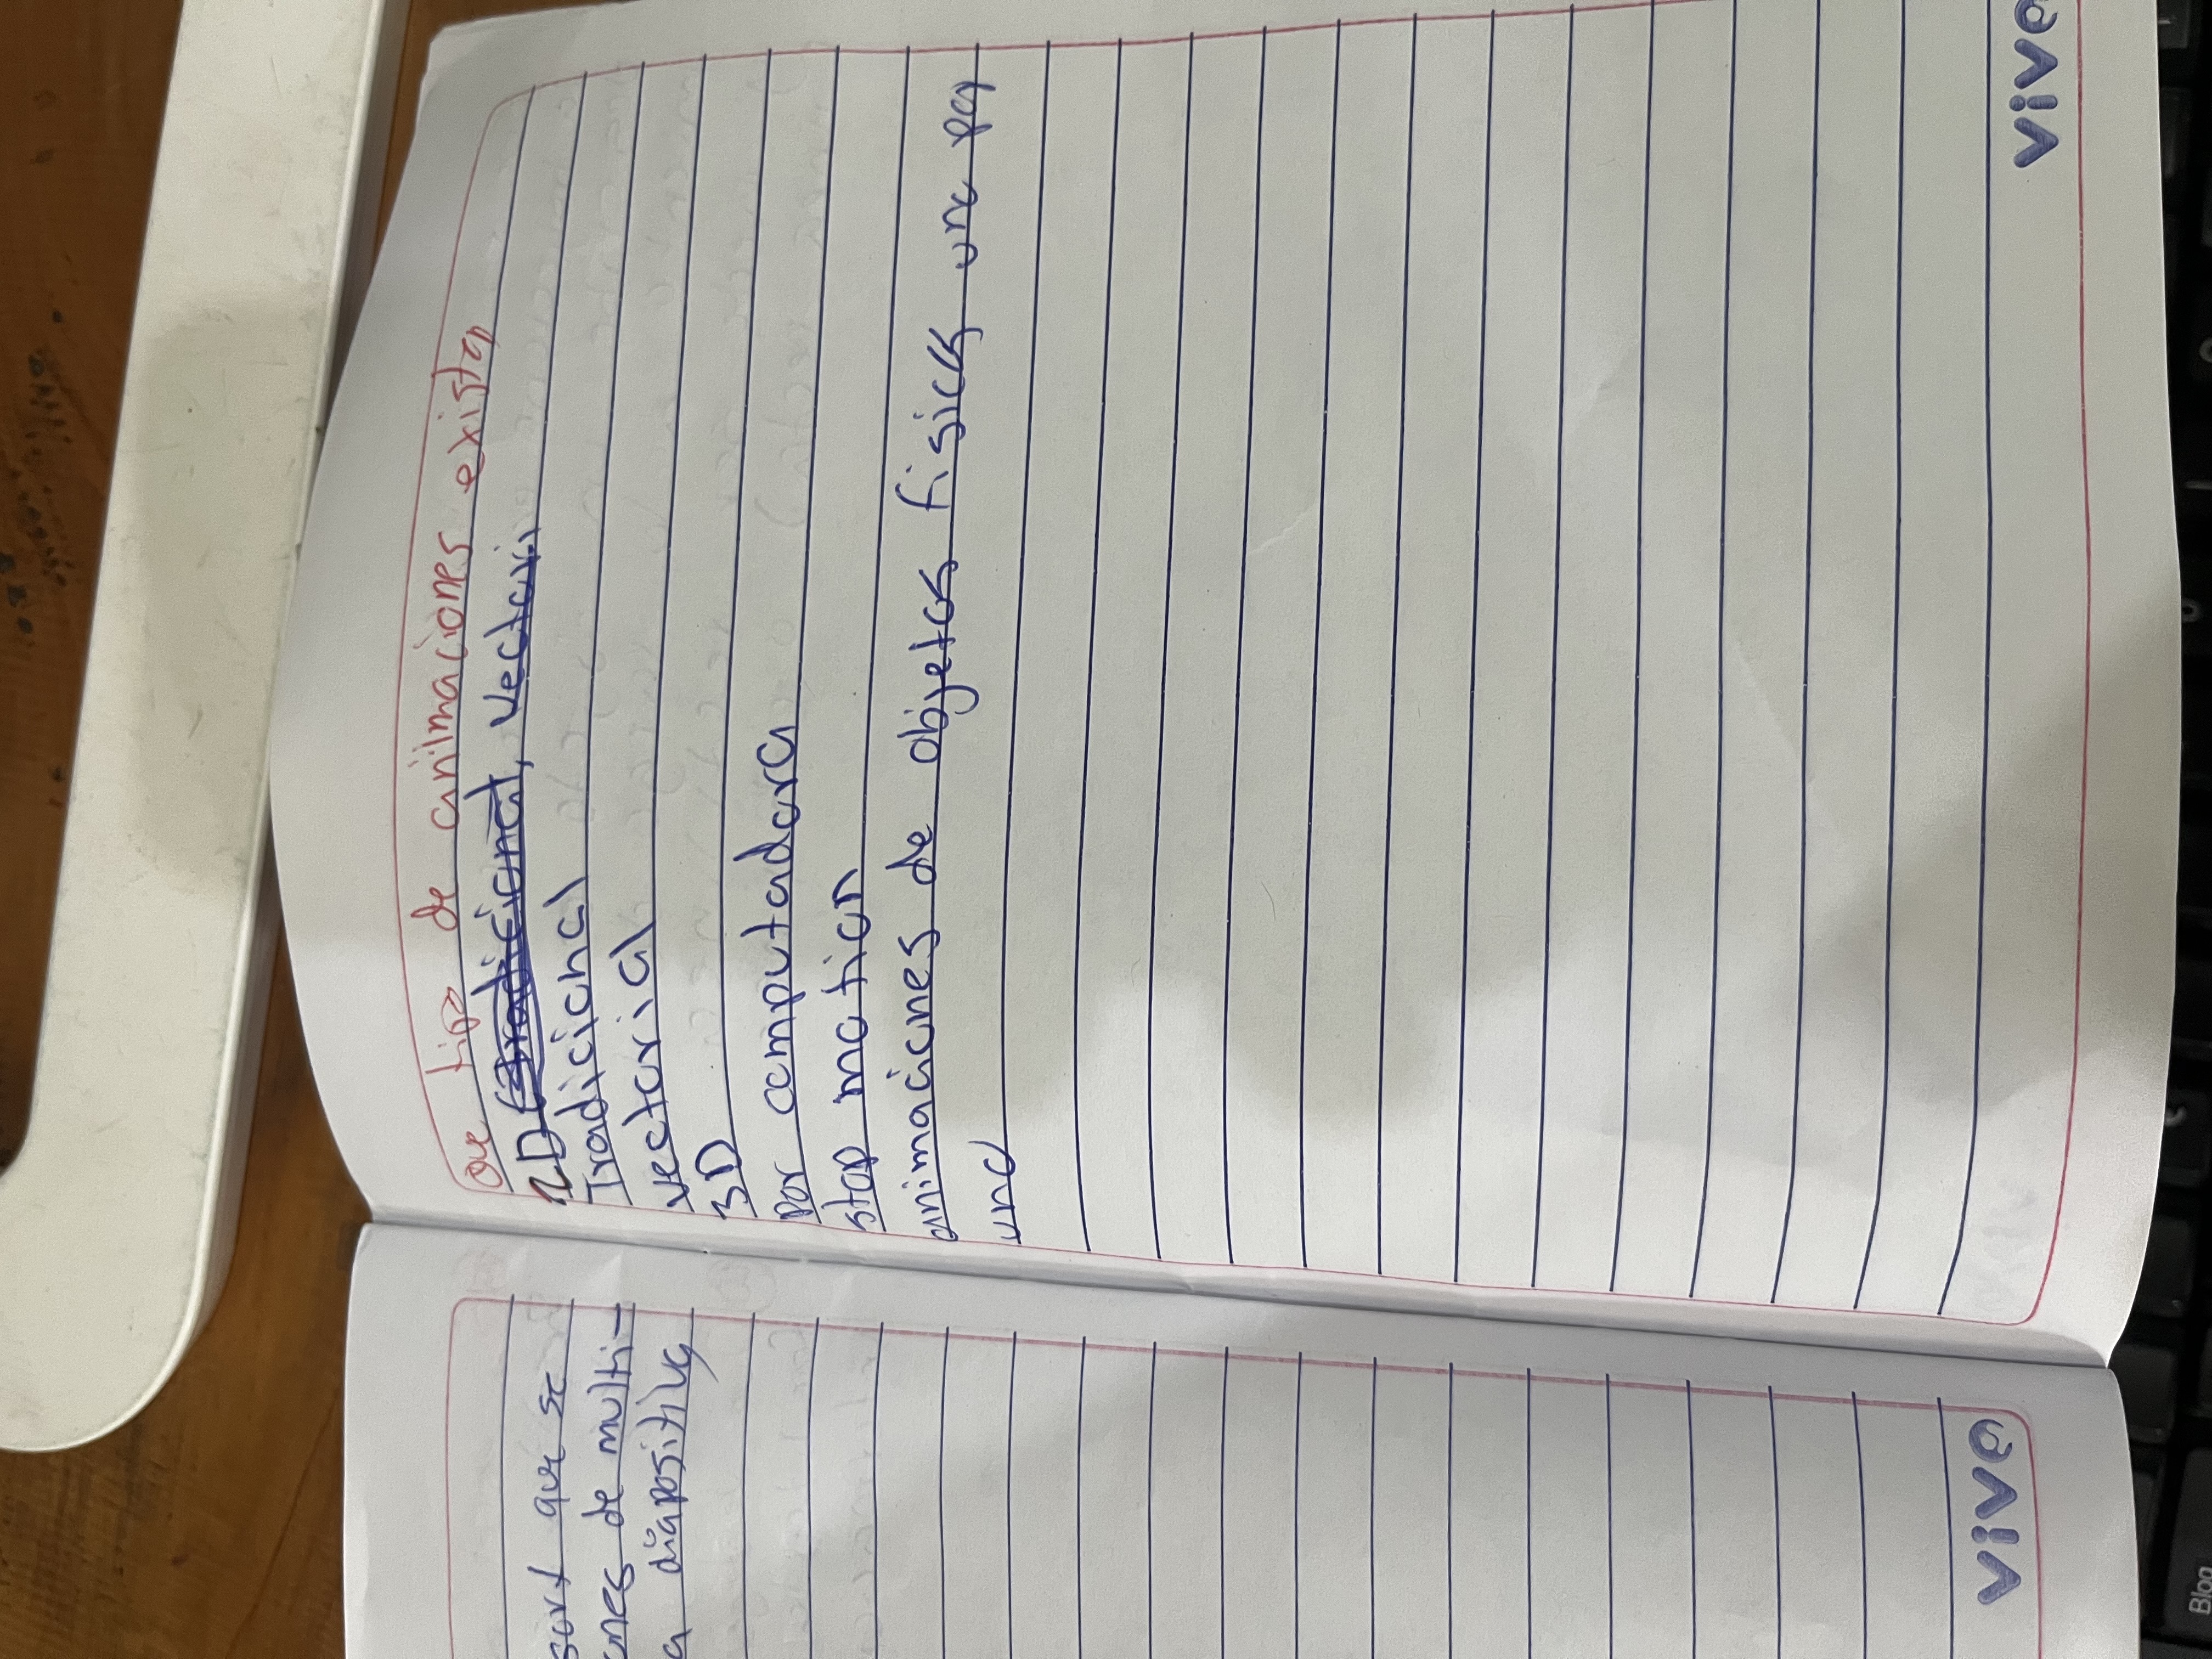 sort que se
ones de multi-
a diapositiva
vivo
Que tipo de animaciones exista
2D (tradicional, vectori
Tradicional
vectorial
3D
por computadora
stop motion
animaciones de objetos fisicas una por
una
vivo
Bloq